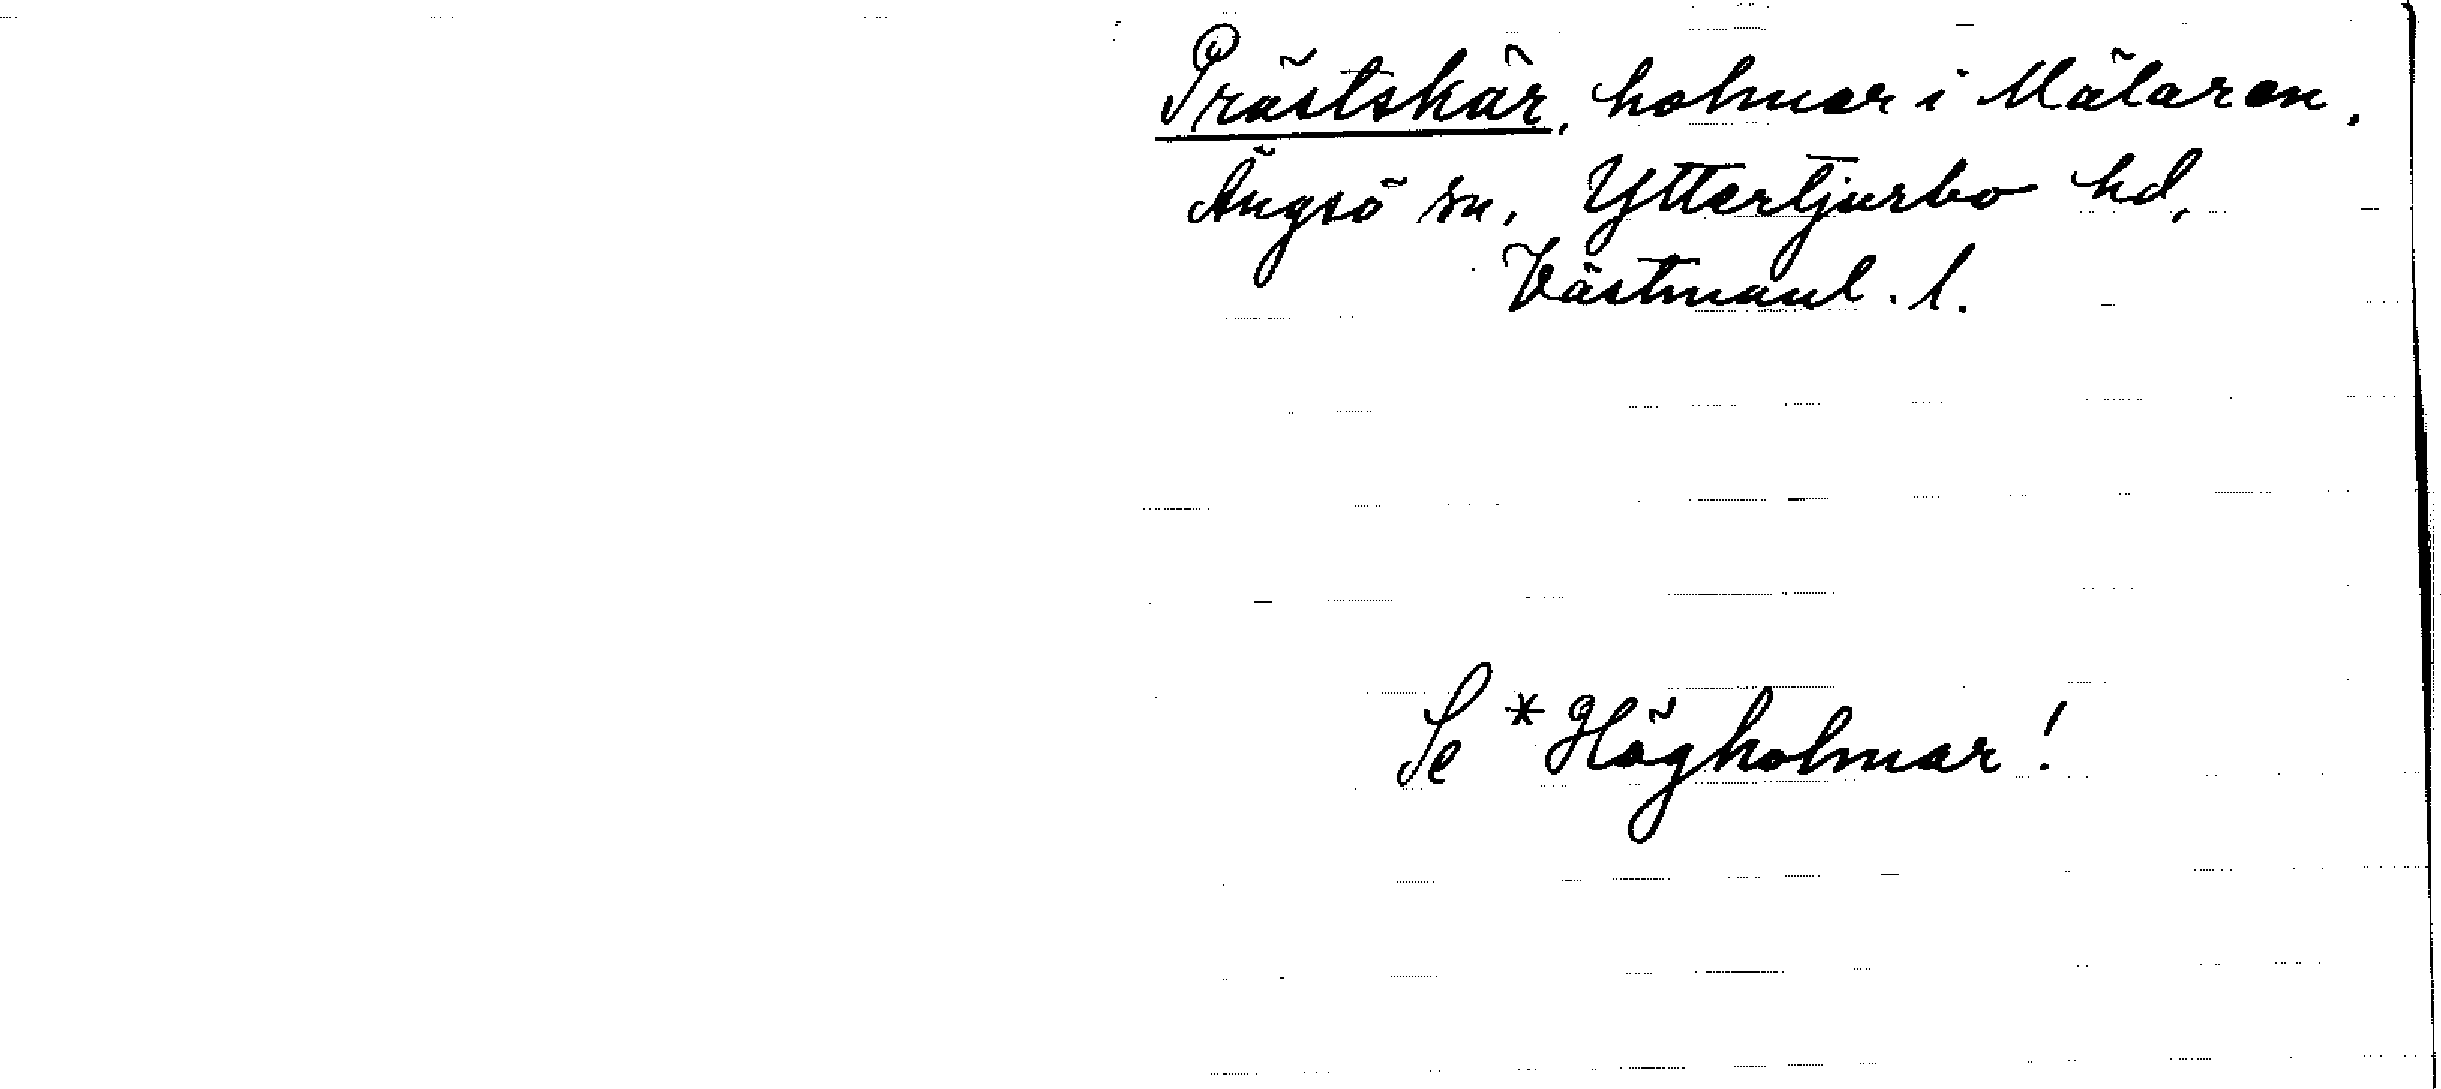 Prästskär, holmar i Mälaren.
Ängsö sn, Yttertjurbo hd,
Västmanl. l.
Se *Högholmar!